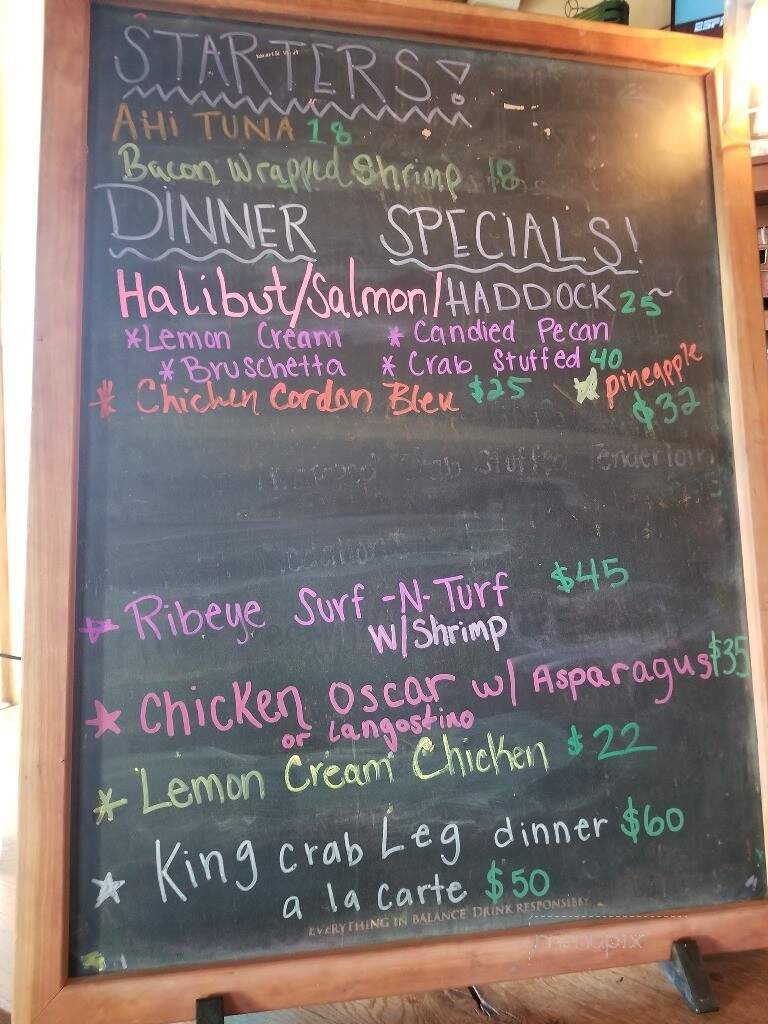 ESPN
STARTERS!
AHi TUNA 18
Bacon Wrapped Shrimp 18
DINNER SPECIALS!
Halibut/Salmon/HADDOCK 25~
*Lemon Cream * Candied Pecan
* Bruschetta * Crab Stuffed 40
* Chicken Cordon Bleu $25
pineapple
$32
Stuffed Tenderloin
Ribeye Surf-N-Turf $45
W/Shrimp
Chicken Oscar w/ Asparagus $35
or Langostino
Lemon Cream Chicken $22
King crab Leg dinner $60
a la carte $50
EVERYTHING IN BALANCE. DRINK RESPONSIBLY.
menupix